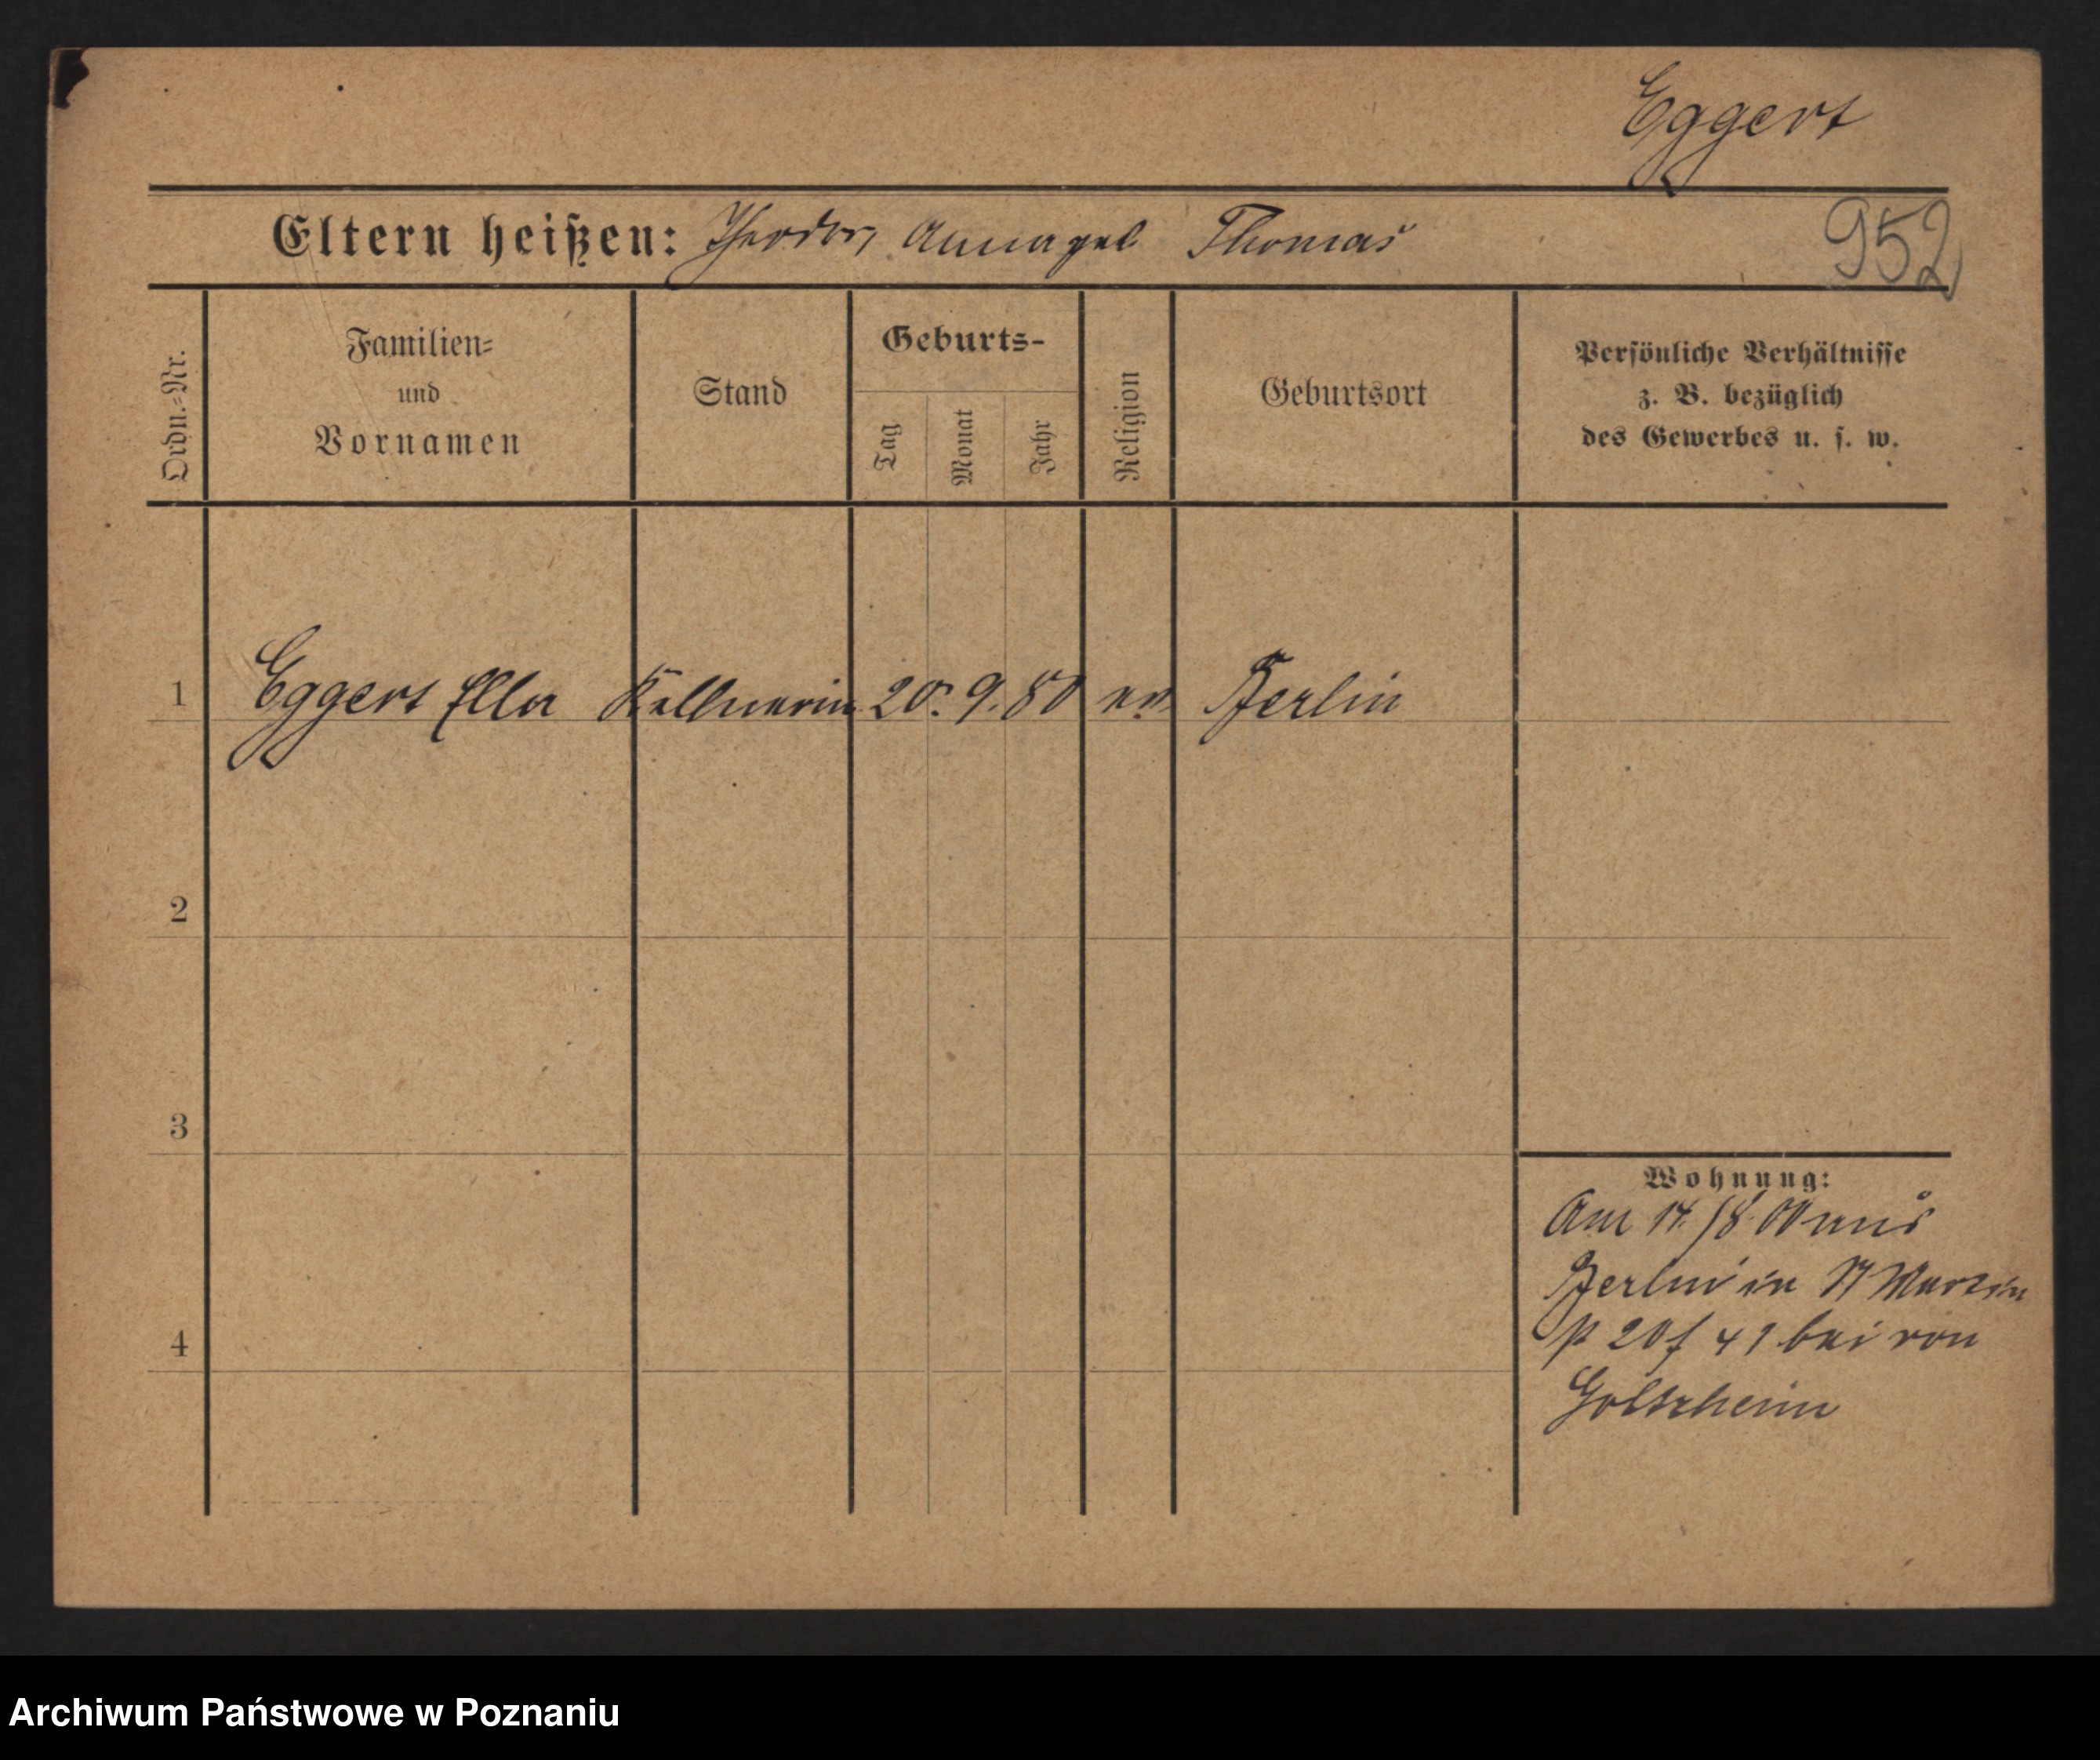 Eggert
Eltern heißen: Theodor, Anna geb Thomas
952
Ordn.-Nr.
Familien-
und
Vornamen
Stand
Geburts-
Tag
Monat
Jahr
Religion
Geburtsort
Persönliche Verhältnisse
z. B. bezüglich
des Gewerbes u. s. w.
1 Eggert Ella Kellnerin 20. 9. 80 ev. Berlin
2
3
4
Wohnung:
Am 14./8. 00 aus
Berlin in St Martin
41 bei von
Goltzheim
Archiwum Państwowe w Poznaniu